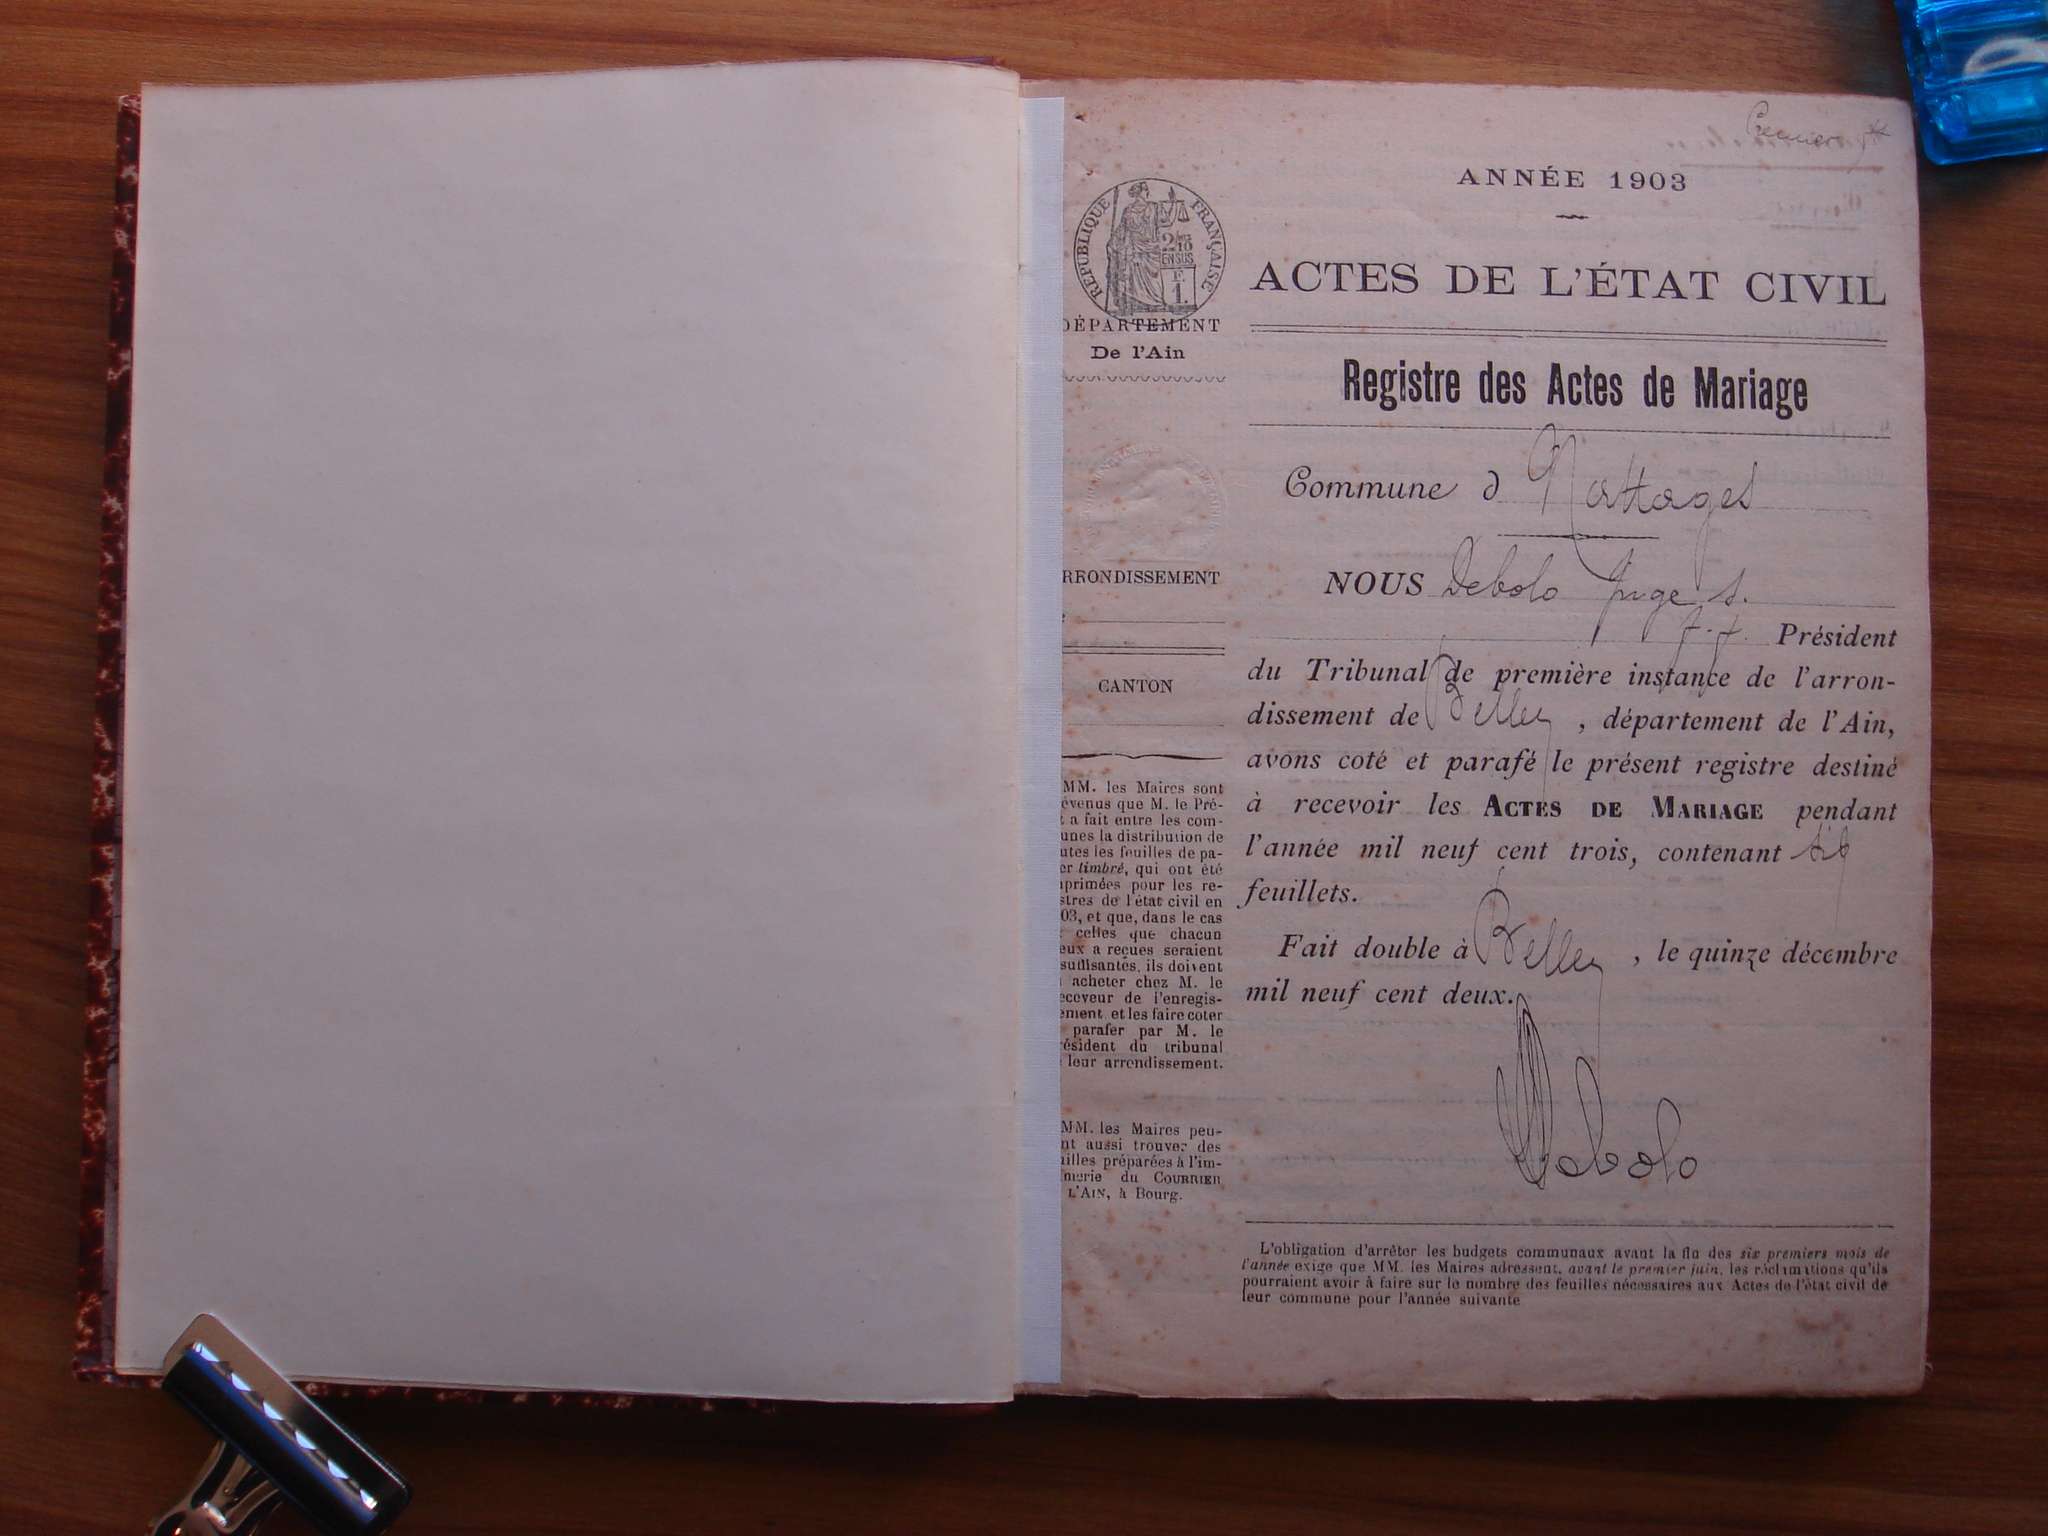 Premier
ANNÉE 1903
RÉPUBLIQUE FRANÇAISE
2/10
EN SUS
F.
1.
ACTES DE L'ÉTAT CIVIL
DÉPARTEMENT
De l'Ain
Registre des Actes de Mariage
Commune d Nattages
RRONDISSEMENT
NOUS Debolo Juge s.
f. f. Président
CANTON
du Tribunal de première instance de l'arron-
dissement de Belley, département de l'Ain,
avons coté et parafé le présent registre destiné
à recevoir les ACTES DE MARIAGE pendant
l'année mil neuf cent trois, contenant six
feuillets.
Fait double à Belley, le quinze décembre
mil neuf cent deux.
Debolo
MM. les Maires sont
évenus que M. le Pré-
t a fait entre les com-
unes la distribution de
utes les feuilles de pa-
er timbré, qui ont été
primées pour les re-
stres de l'état civil en
03, et que, dans le cas
celles que chacun
eux a reçues seraient
suffisantes, ils doivent
acheter chez M. le
eceveur de l'enregis-
ement et les faire coter
parafer par M. le
résident du tribunal
leur arrondissement.
MM. les Maires peu-
nt aussi trouver des
illes préparées à l'im-
merie du COURRIER
L'AIN, à Bourg.
L'obligation d'arrêter les budgets communaux avant la fin des six premiers mois de
l'année exige que MM. les Maires adressent, avant le premier juin, les réclamations qu'ils
pourraient avoir à faire sur le nombre des feuilles nécessaires aux Actes de l'état civil de
leur commune pour l'année suivante